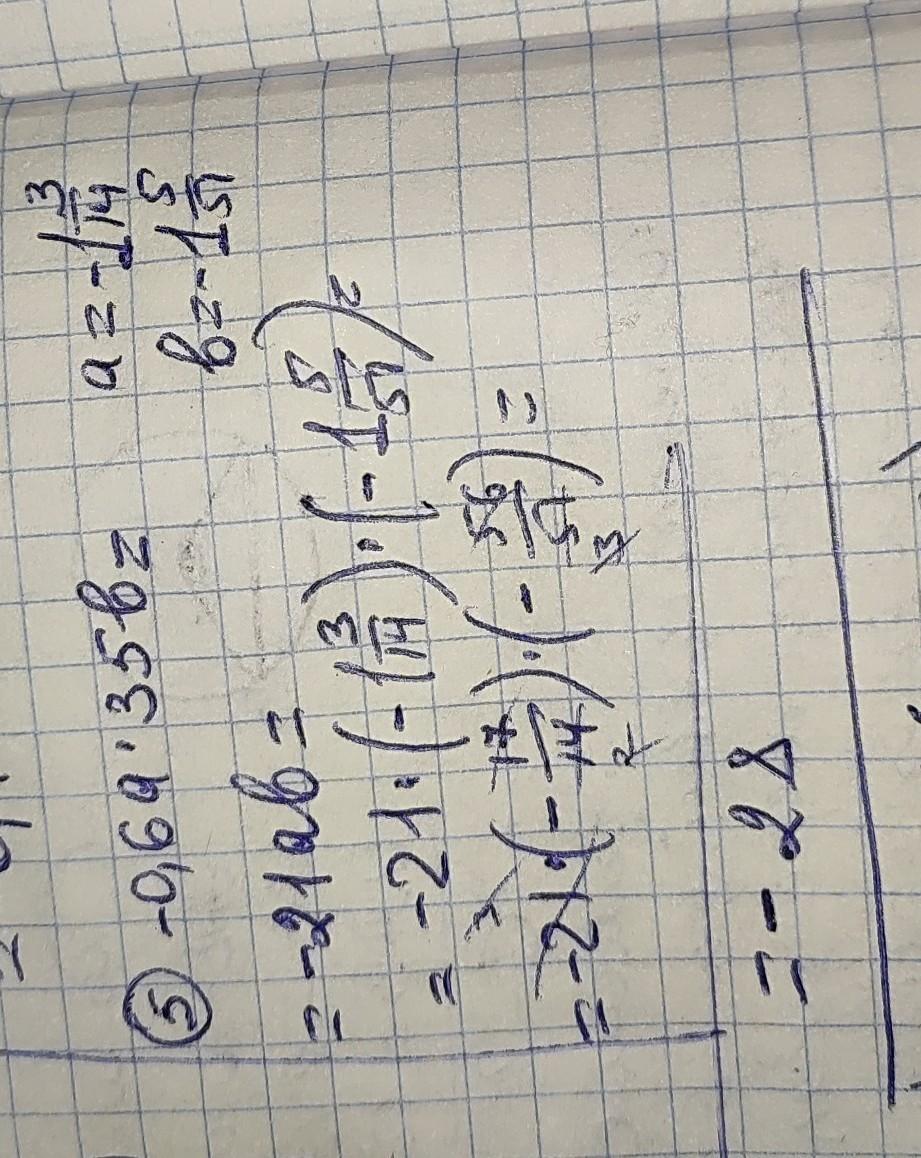 ⑤ -0,6a · 35b =
a = -1 3/14
b = -1 5/51
= -21ab =
= -21 · (-1 3/14) · (-1 5/51) =
= -21 · (-17/14) · (-56/51) =
2 3
= -28